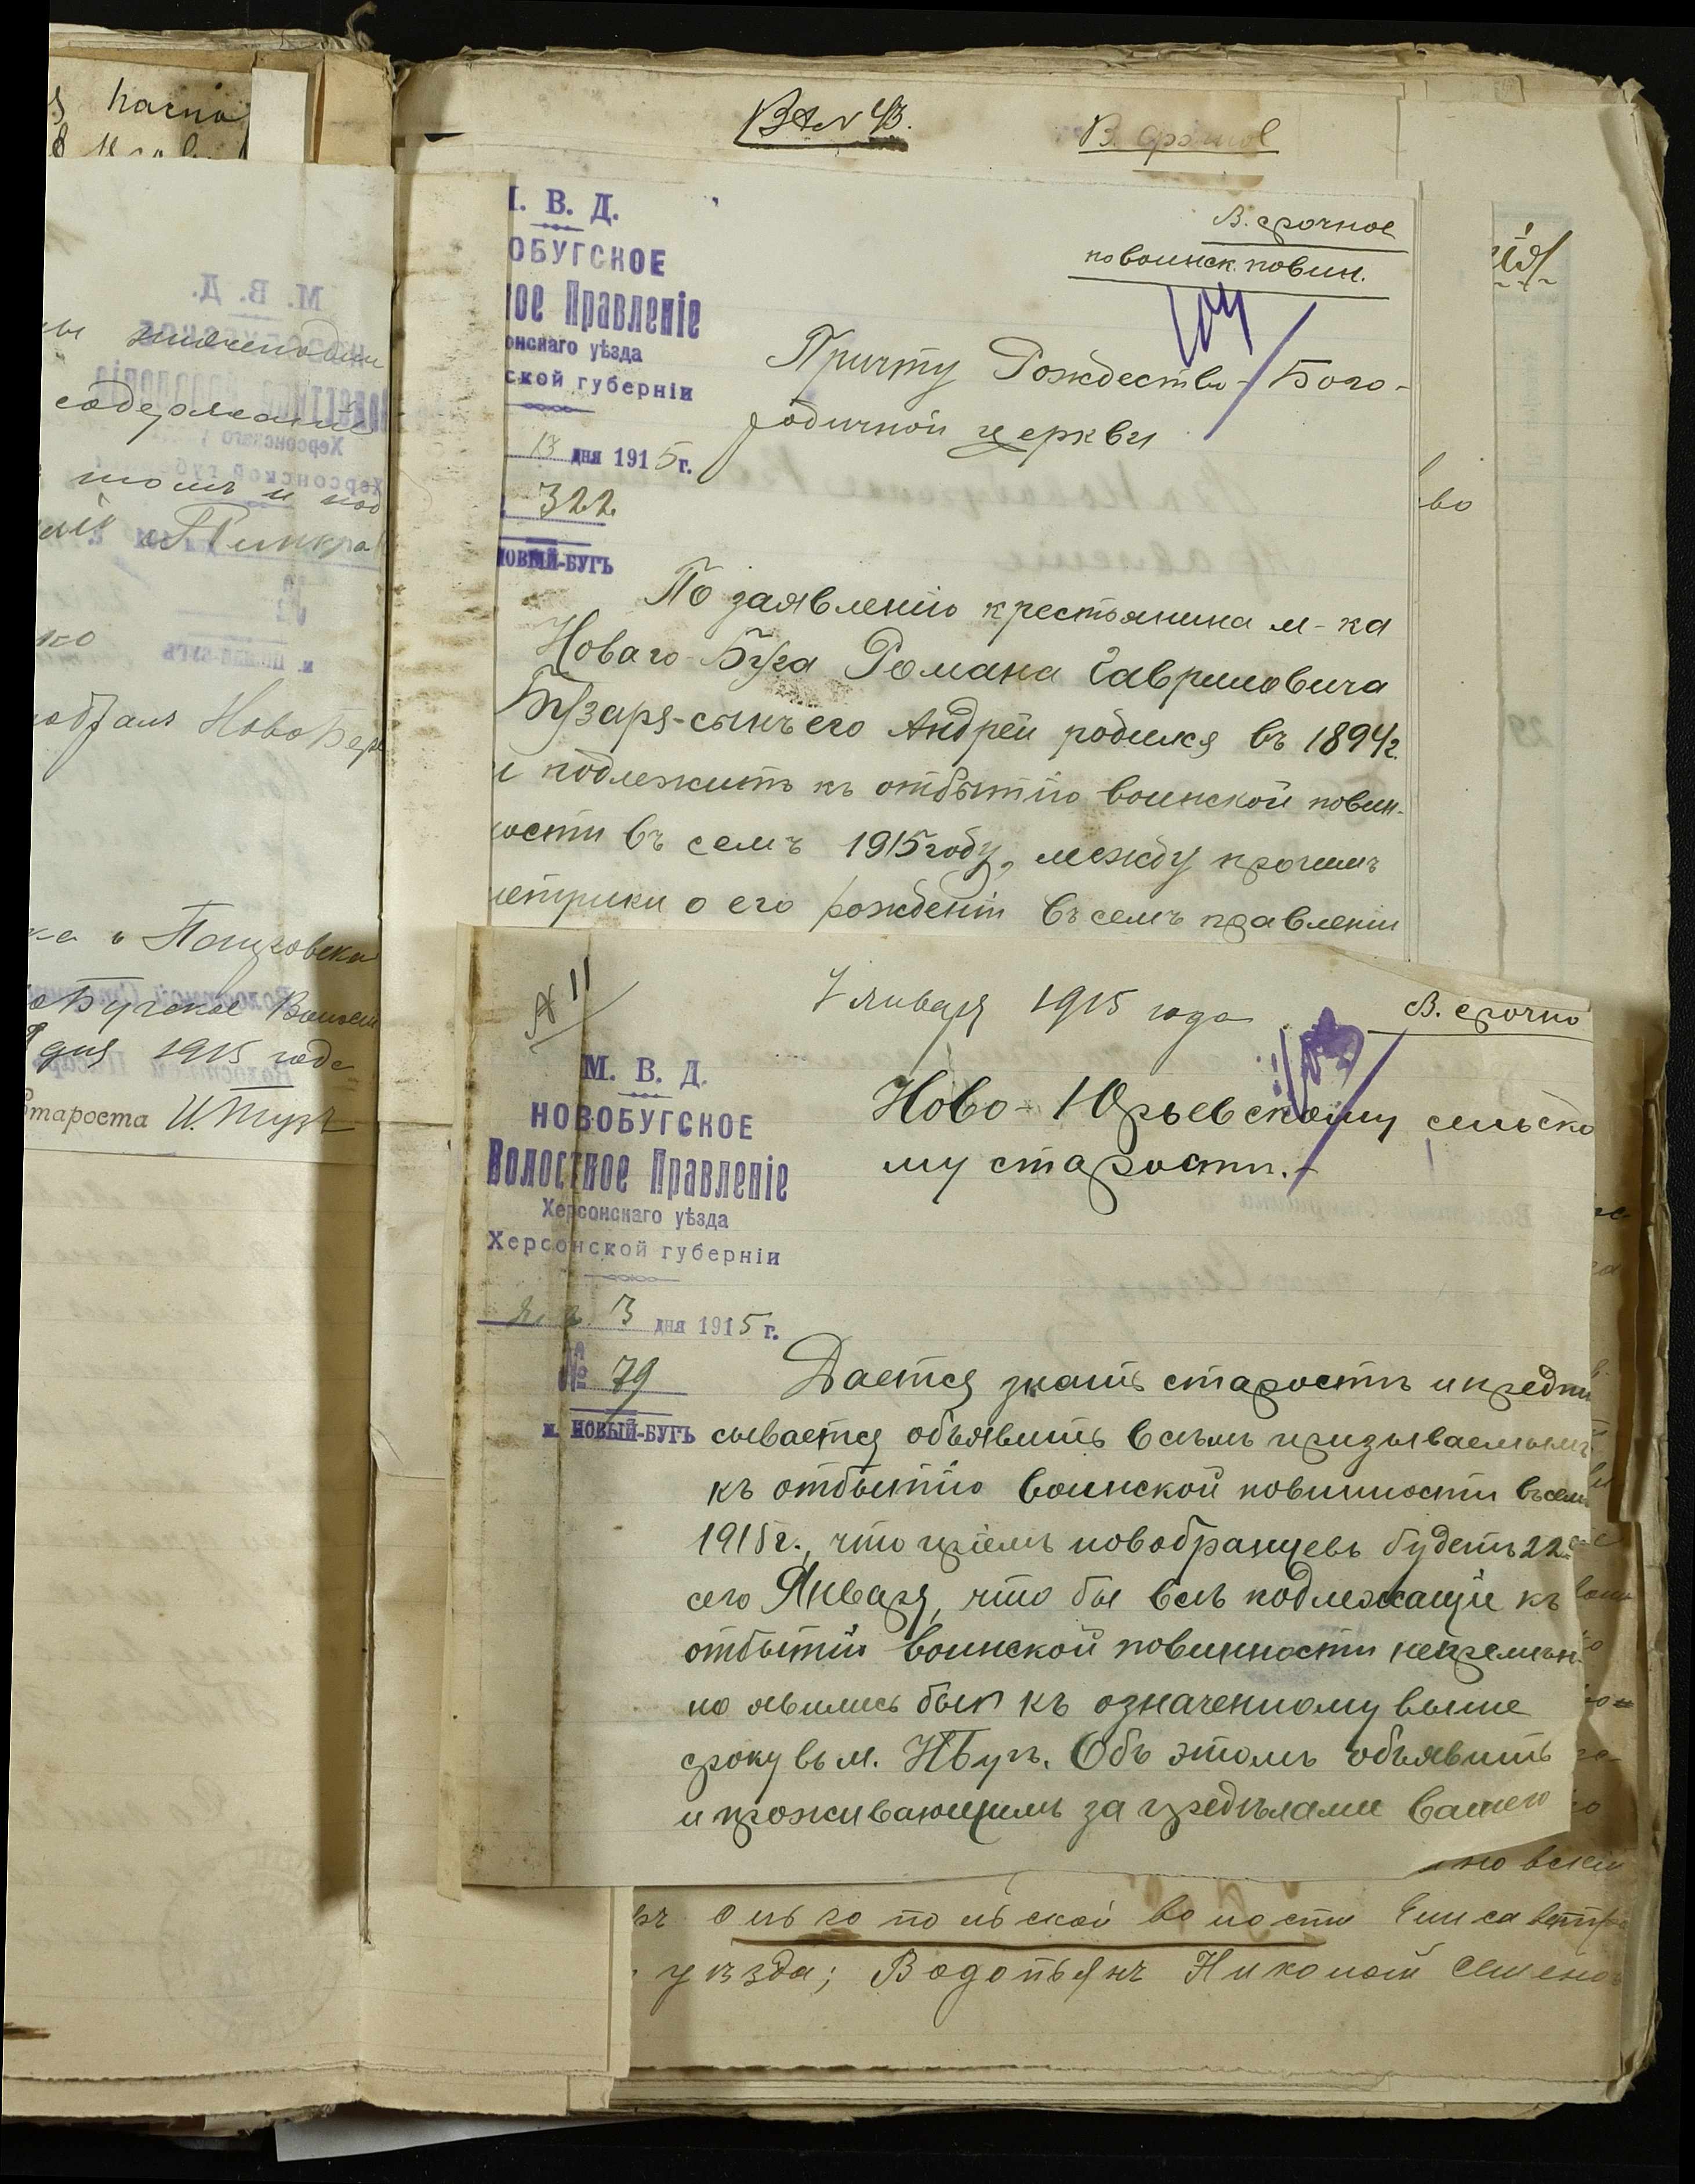 В. срочное
по воинск. повин.
. В. Д.
ОБУГСКОЕ
ое Правленіе
онскаго уѣзда
ской губерніи
13 дня 1915 г.
322
НОВЫЙ-БУГЪ
Причту Рождество-Бого-
родичной церкви
По заявленію крестьянина м-ка
Новаго-Буга Романа Гавриловича
Бузаря-сынъ его Андрей родился въ 1894 г.
и подлежитъ къ отбытію воинской повин-
ности въ семъ 1915 году, между прочимъ
метрики о его рожденіи въ семъ правленіи
11
7 Января 1915 года
В. срочно
М. В. Д.
НОВОБУГСКОЕ
Волостное Правленіе
Херсонскаго уѣзда
Херсонской губерніи
3 дня 1915 г.
№ 79
м. НОВЫЙ-БУГЪ
Ново-Юрьевскому сельско
му старостѣ.-
Дается знать старостѣ и предпи
сывается объявить всѣмъ призываемымъ
къ отбытію воинской повинности въ семъ
1915 г., что пріемъ новобранцевъ будетъ 22го
сего Января, что бы всѣ подлежащіе къ
отбытію воинской повинности непремѣн-
но явились бы къ означенному выше
сроку въ м. НБугъ. Объ этомъ объявить
и проживающимъ за предѣлами вашего
Ольгопольской волости
уѣзда; Водопьянъ Николай Семенов
содержаніе
томъ и под
Ново
Бугское Волост
дня 1915 года
Староста